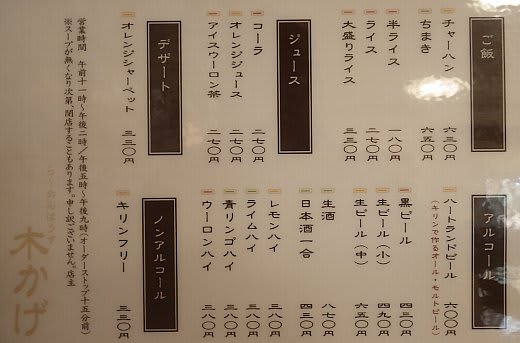 ご飯
チャーハン 六三〇円
ちまき 六五〇円
半ライス 一八〇円
ライス 二七〇円
大盛りライス 三三〇円
ジュース
コーラ 二七〇円
オレンジジュース 二七〇円
アイスウーロン茶 二七〇円
デザート
オレンジシャーベット 三三〇円
アルコール
ハートランドビール 六〇〇円
(キリンで作るオール・モルトビール)
黒ビール 四三〇円
生ビール(小) 四九〇円
生ビール(中) 六五〇円
生酒 八七〇円
日本酒一合 四三〇円
レモンハイ 三八〇円
ライムハイ 三八〇円
青リンゴハイ 三八〇円
ウーロンハイ 三八〇円
ノンアルコール
キリンフリー 三三〇円
営業時間 午前十一時〜午後二時/午後五時〜午後九時(オーダーストップ十五分前)
※スープが無くなり次第、閉店することもあります。申し訳ございません。店主
木かげ